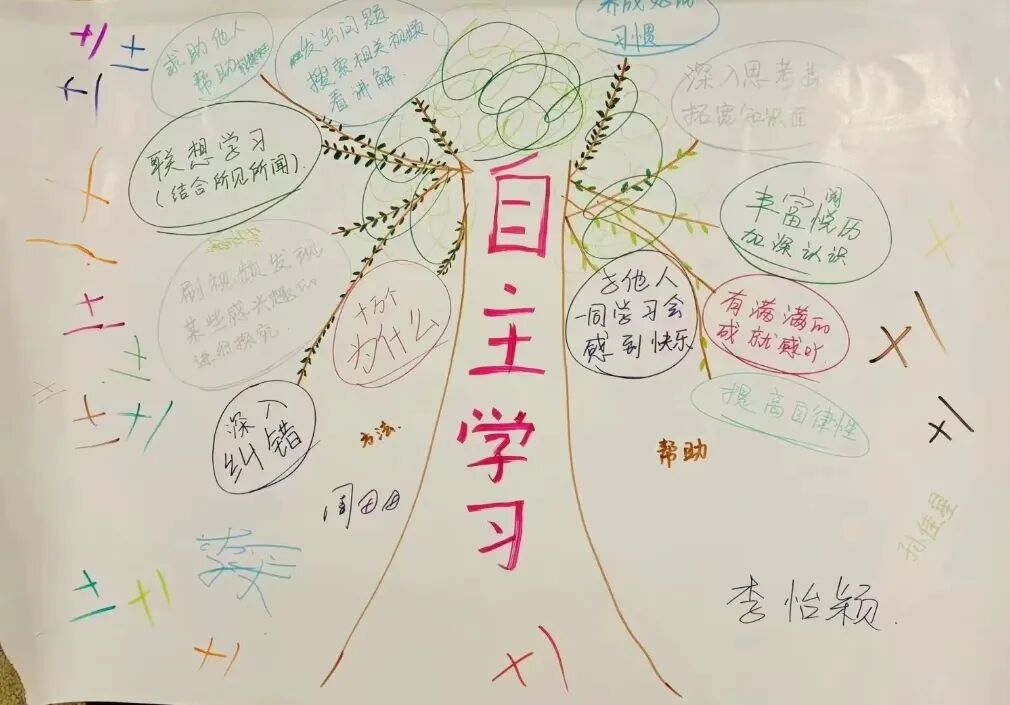 求助他人
帮助
发出问题
搜索相关视频
看讲解
习惯
深入思考并
拓宽知识面
联想学习
(结合所见所闻)
刷视频发现
某些感兴趣的
进行探究
十万个
为什么
深入
纠错
自主学习
丰富阅
历
加深认识
与他人
一同学习会
感到快乐
有满满的
成就感吖
提高自律性
方法
帮助
周田田
孙佳星
李怡颖
+1
+1
+1
+1
+1
+1
+1
+1
+1